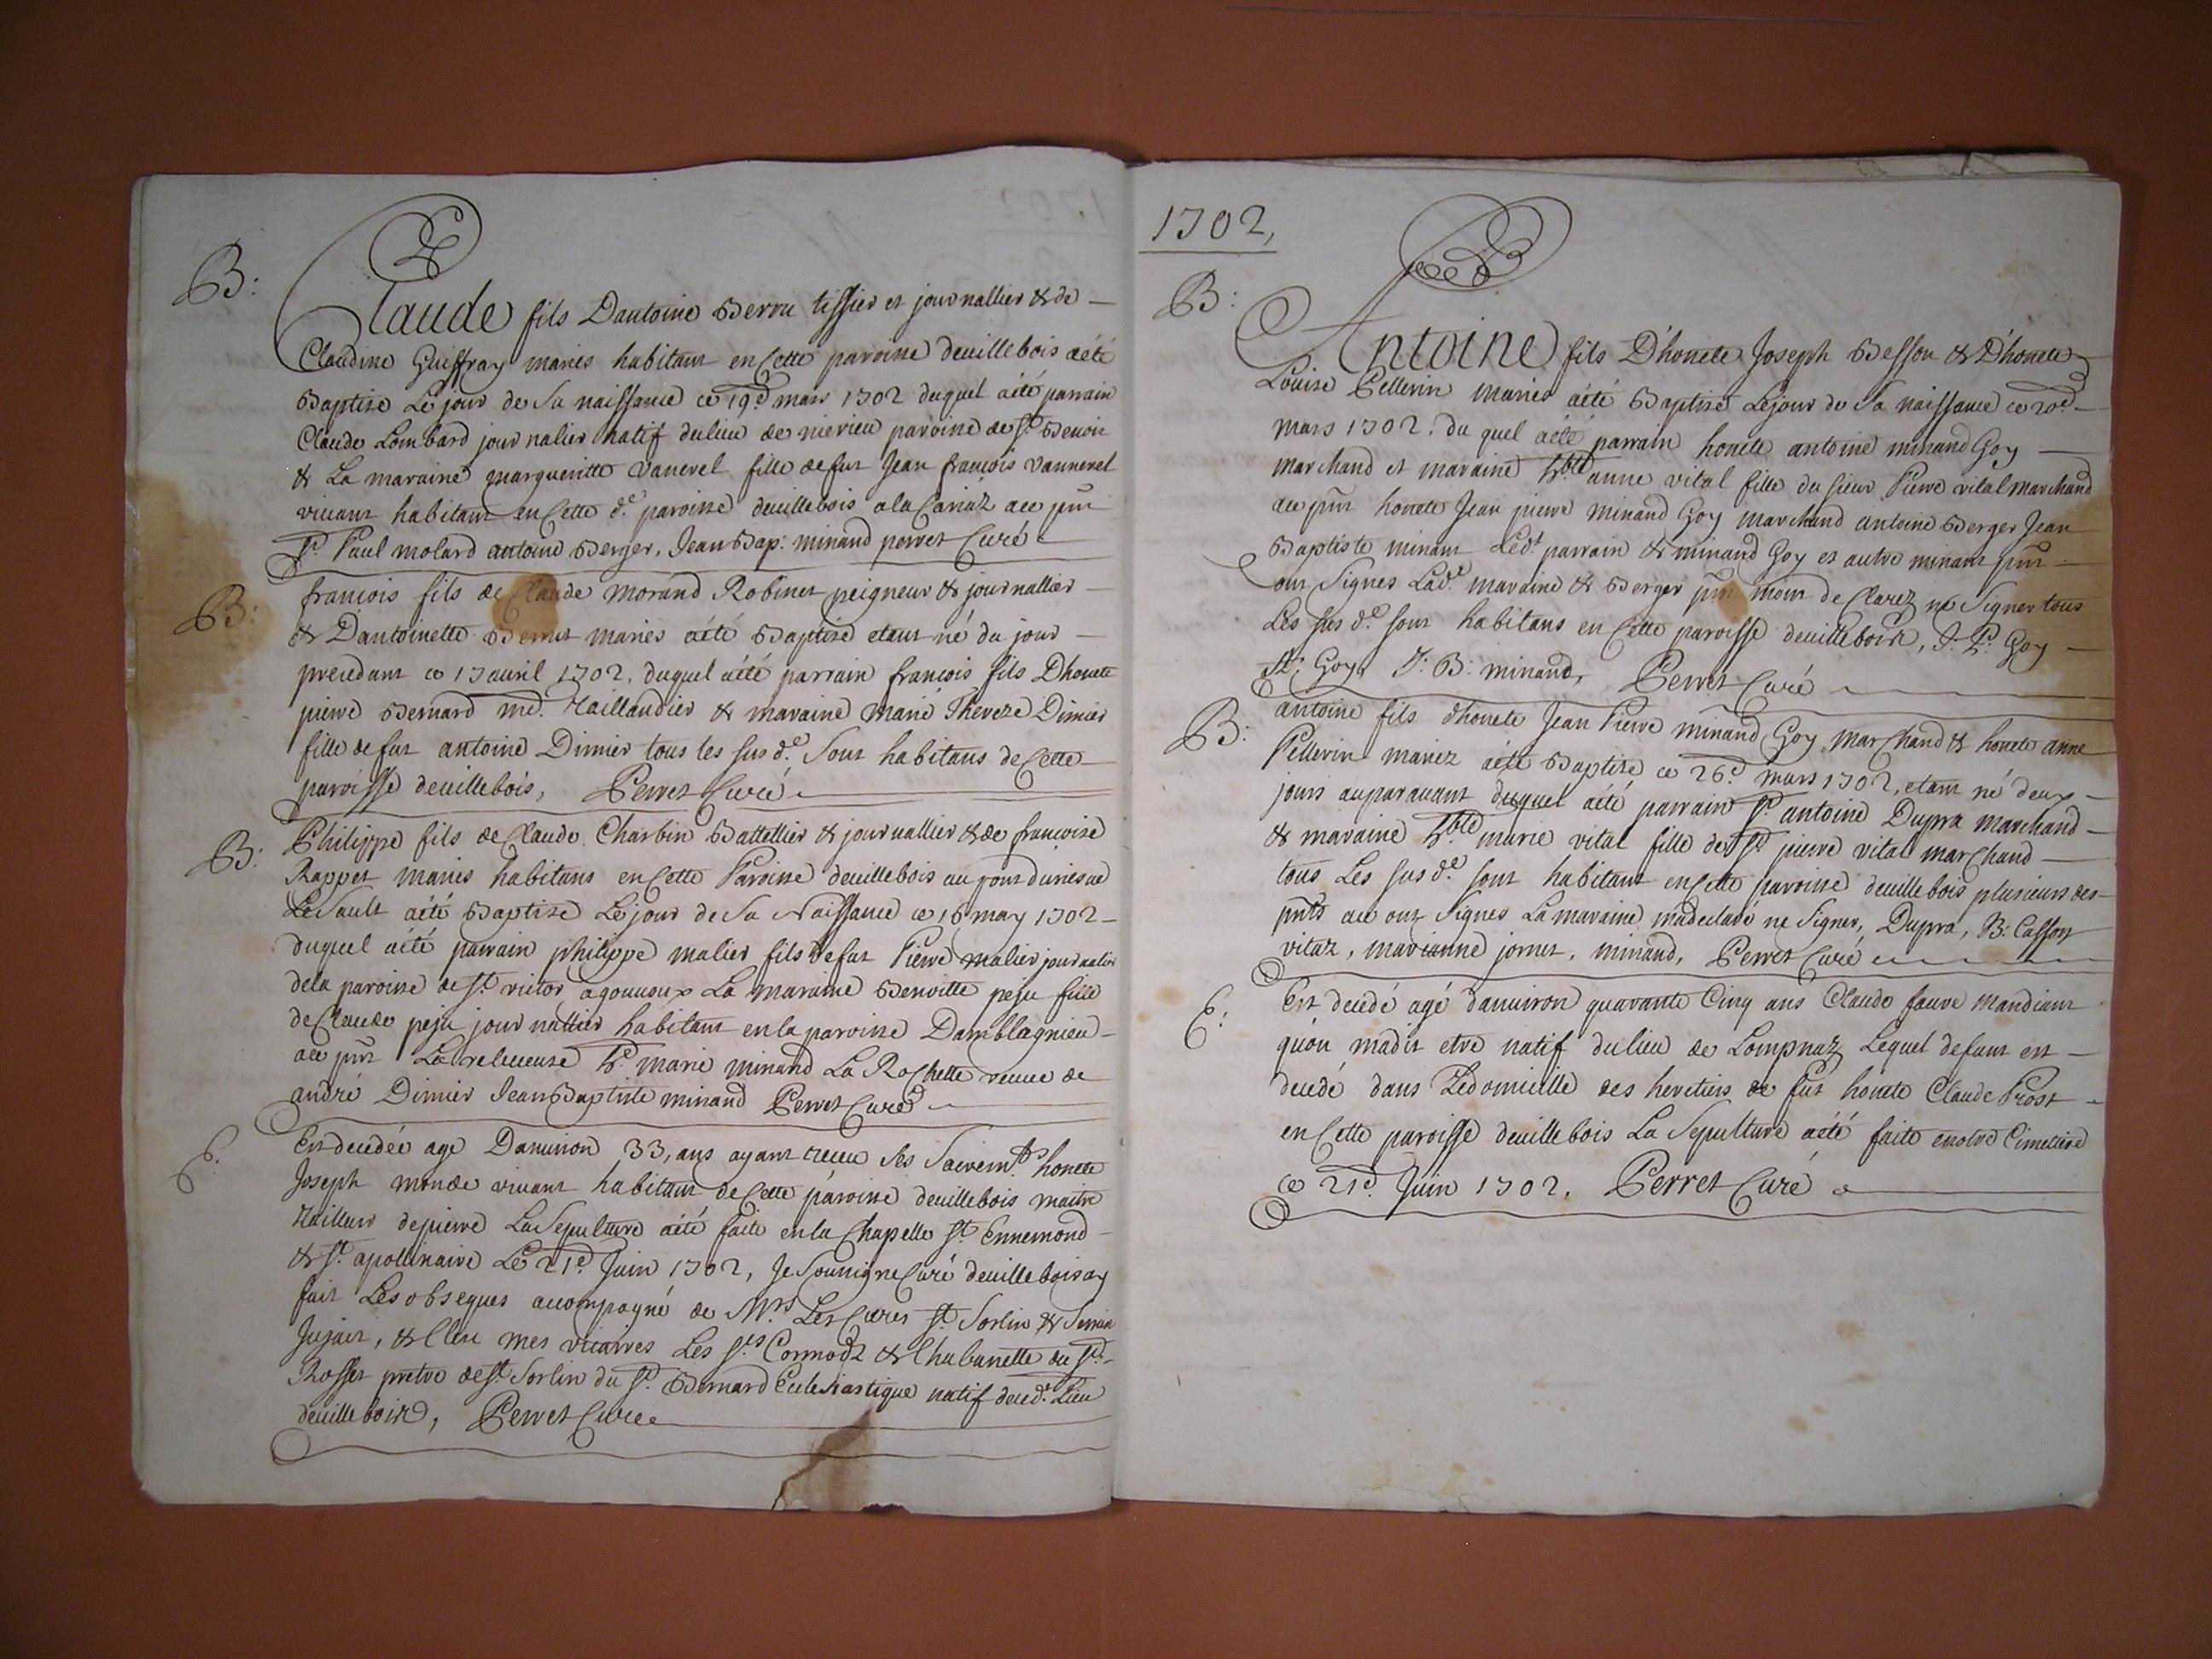 B:
Claude fils Dantoine Berru tissier et journallier & de
Claudine Guiffray mariés habitant en Cette paroisse deuillebois aété
Baptisé Le jour de sa naissance ce 19e mars 1702 duquel aété parrain
Claude Lombard journalier natif dulieu de nierieu paroisse de St Benoit
& La maraine margueritte vanerel fille defut Jean françois vannerel
vivant habitant en Cette de paroisse deuillebois ala Cariaz ace pnt
Sr Paul molard antoine Berger, Jean Bap: minand perret Curé
B:
françois fils de Claude morand Robinet peigneur & journallier
& Dantoinette mariés aété Baptisé etant né du jour
precedant ce 17 auril 1702, duquel aété parrain françois fils Dhonete
pierre Bernard me. Taillandier & maraine marie Thereze Dimier
fille defut antoine Dimier tous les susde sont habitans de Cette
paroisse deuillebois, Perret Curé
B:
Philippe fils de Claude Charbin Battellier & journallier & de françoise
Rappet mariés habitans en Cette Paroisse deuillebois au
Le Sault aété Baptisé Le jour de sa Naissance ce 16 may 1702
duquel aété parrain philippe malier fils defut Pierre malier journalier
dela paroisse de St victor agouuoux La maraine Benoitte peju fille
de Claude peju journallier habitant en la paroisse Damblagnieu
ace pnt La releueuse he marie minand La Rochette veuue de
andré Dimier Jean Baptiste minand Perret Curé
E:
Est decedée age Danuiron 33, ans ayant receu ses Sacremts honete
Joseph monde viuant habitant de Cette paroisse deuillebois maitre
Tailleur depierre La Sepulture aété faite en la Chapelle St Ennemond
& St apollinaire Le 21e Juin 1702, Je Soussigné Curé deuillebois ay
fait Les obseques accompagné de Mrs Les Cures St Sorlin &
Jujat, & mes vicaires Les Srs & Chabanette du Sr
Rosset pretre de St Sorlin du Sr Bernard Eclesiastique natif decede Lieu
deuillebois, Perret Curé
1702,
B:
Antoine fils D'honete Joseph Besson & D'honete
Louise Pellerin mariés aété Baptisé Lejour de Sa naissance ce 20e
mars 1702. du quel aété parrain honete antoine minand Goy
marchand et maraine hble anne vital fille du sieur Pierre vital marchand
ace pnt honete Jean pierre minand Goy marchand antoine Berger Jean
Baptiste minant Ledt parrain & minand Goy et autre minant pnt
ont Signes Lade maraine & Berger pnt mont de Clarez ne Signer tous
Les sus de sont habitans en Cette paroisse deuillebois, J. P. Goy
At: Goy J: B: minand, Perret Curé
B:
antoine fils dhonete Jean Pierre minand Goy marchand & honete anne
Pellerin mariez aété Baptisé ce 26e mars 1702, etant né deux
jours auparauant duquel aété parrain Sr antoine Dupra marchand
& maraine hble marie vital fille de Sr pierre vital marchand
tous Les susde sont habitant en Cette paroisse deuillebois plusieurs des
pnts ace ont Signes La maraine madeclaré ne Signer, Dupra, B: Casson
vitaz, marianne jornet, minand, Perret Curé
E:
Est decedé agé danuiron quarante Cinq ans Claude faure mandiant
qu'on madit etre natif dulieu de Lompnaz Lequel defunt est
decedé dans Ledomicille des heretiers de fut honete Claude Prost
en Cette paroisse deuillebois La Sepulture aété faite enotre Cimettiere
ce 21e Juin 1702. Perret Curé